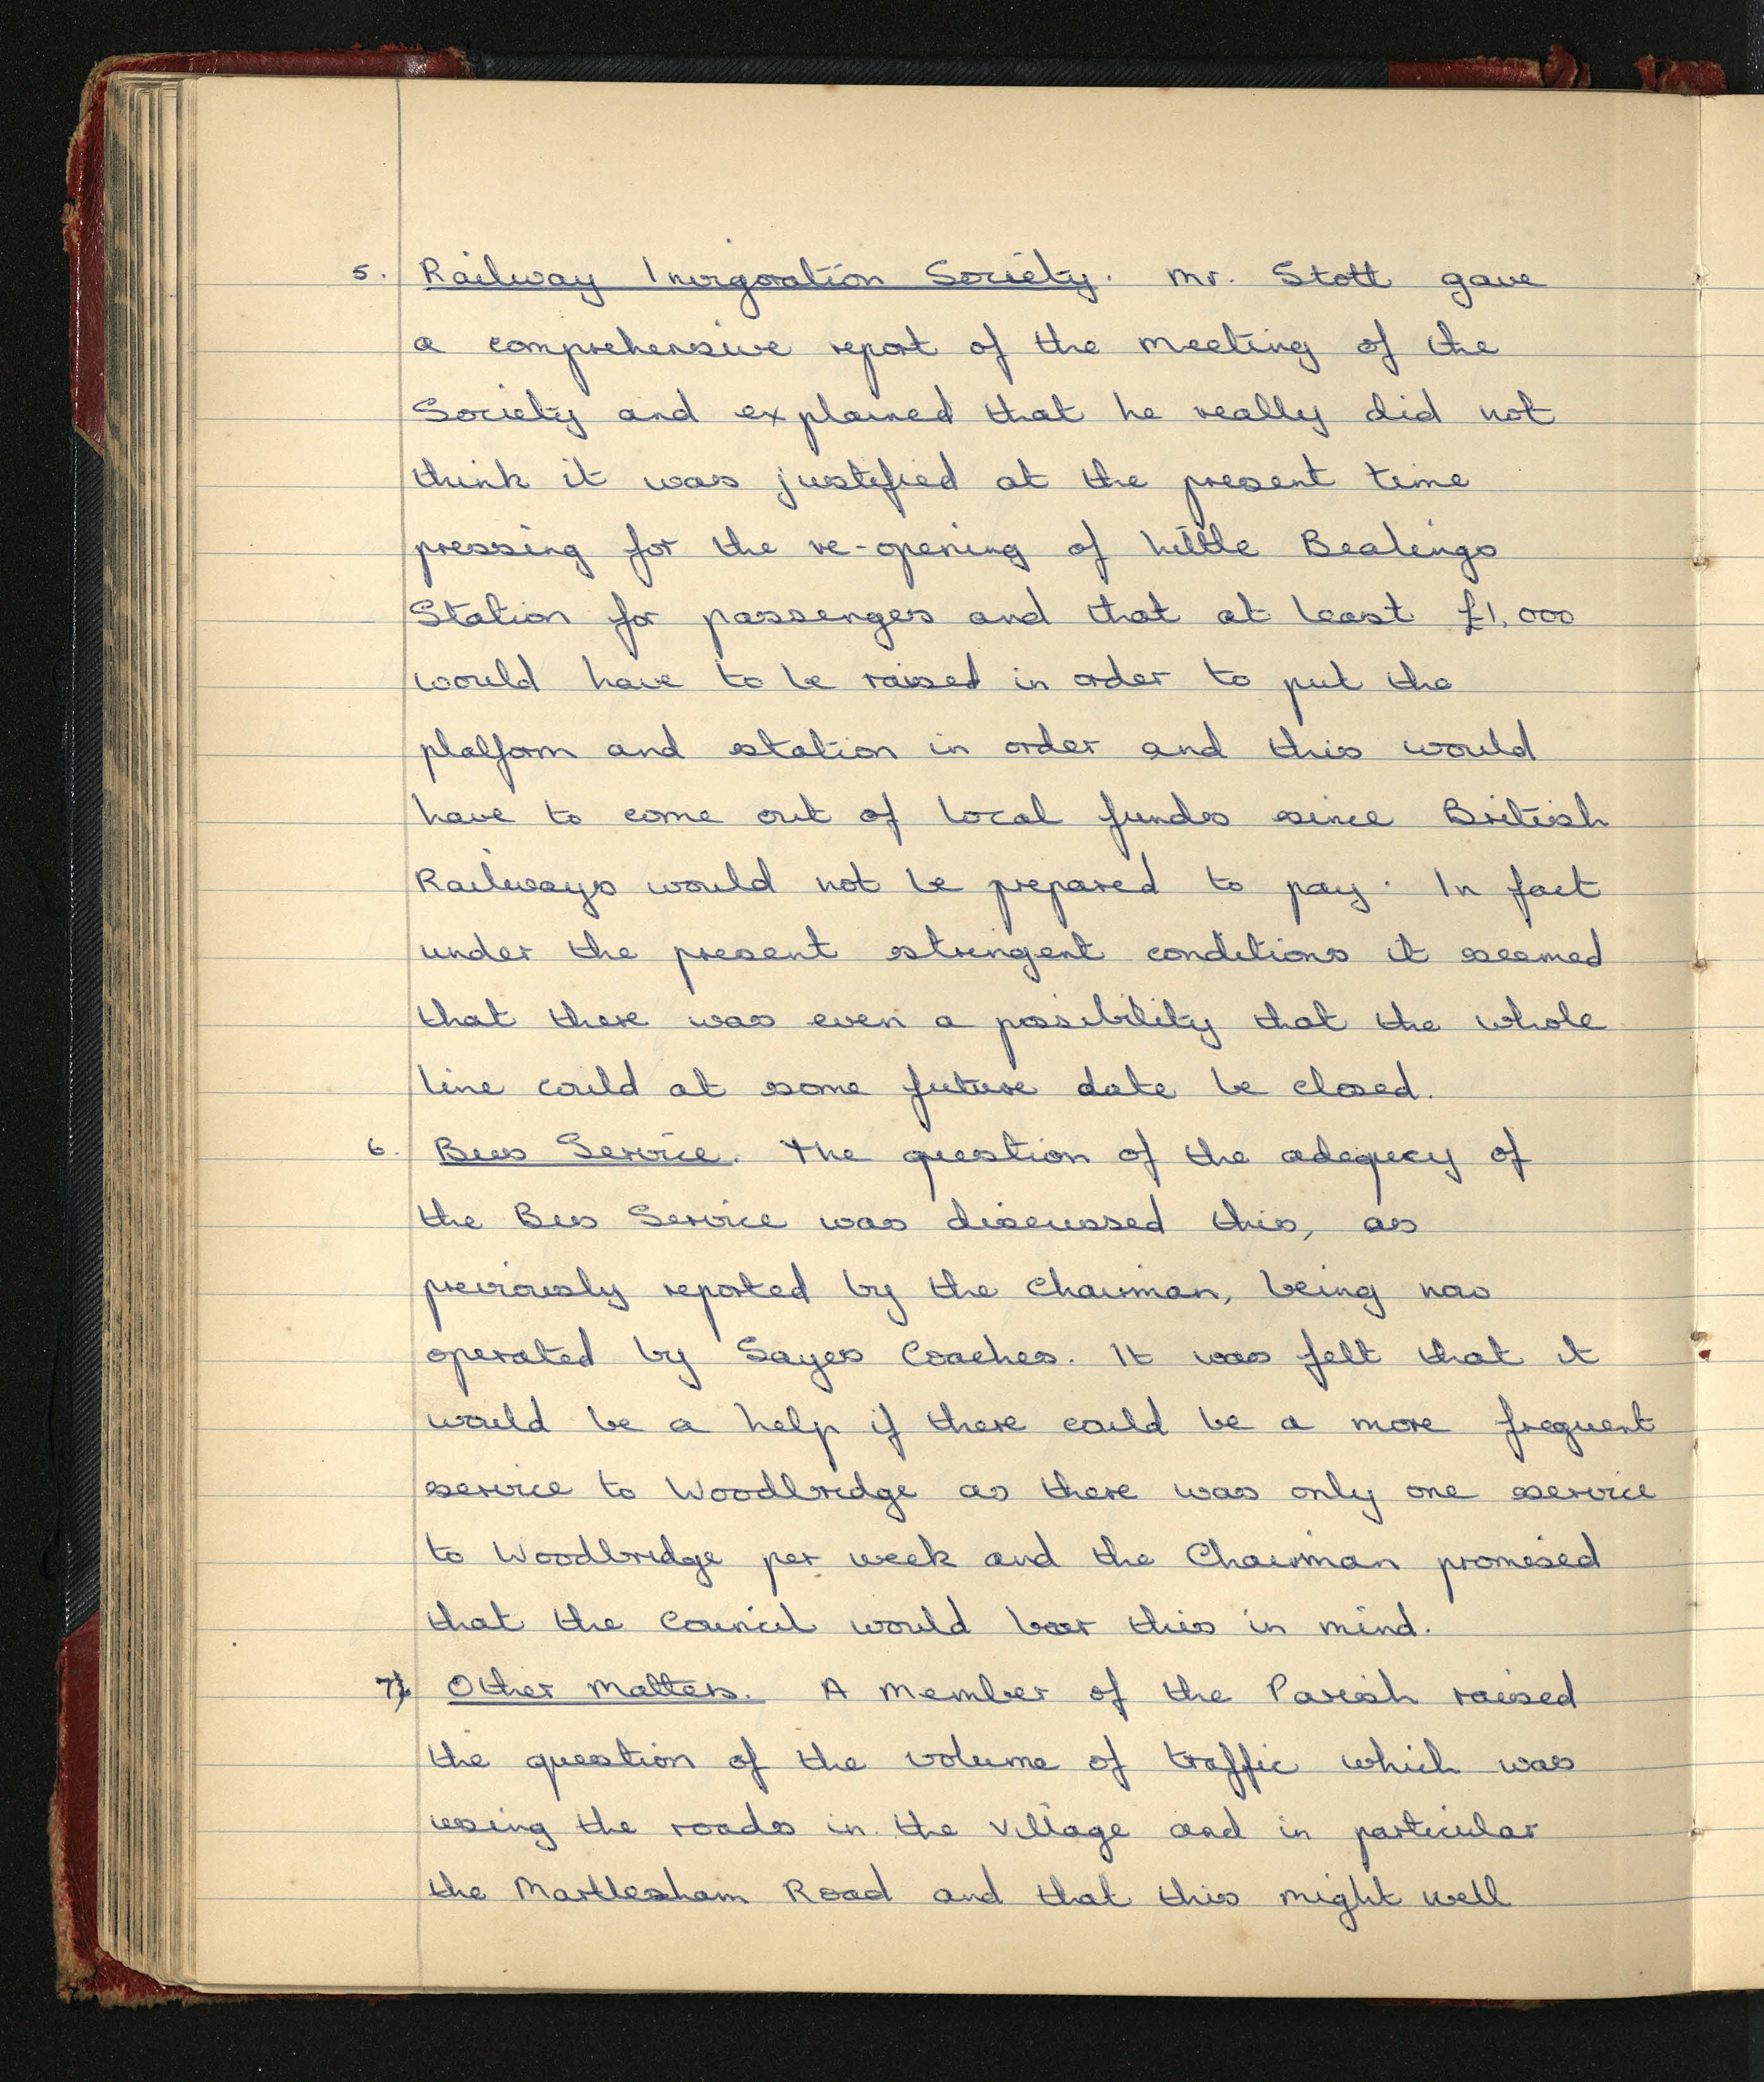 5. Railway Invigoration Society. Mr. Stott gave
a comprehensive report of the meeting of the
Society and explained that he really did not
think it was justified at the present time
pressing for the re-opening of Little Bealings
Station for passengers and that at least £1,000
would have to be raised in order to put the
platform and station in order and this would
have to come out of local funds since British
Railways would not be prepared to pay. In fact
under the present stringent conditions it seemed
that there was even a possibility that the whole
line could at some future date be closed.
6. Bus Service. The question of the adequcy of
the Bus Service was discussed this, as
previously reported by the Chairman, being now
operated by Sayes Coaches. It was felt that it
would be a help if there could be a more frequent
service to Woodbridge as there was only one service
to Woodbridge per week and the Chairman promised
that the Council would bear this in mind.
7. Other Matters. A member of the Parish raised
the question of the volume of traffic which was
using the roads in the village and in particular
the Martlesham Road and that this might well